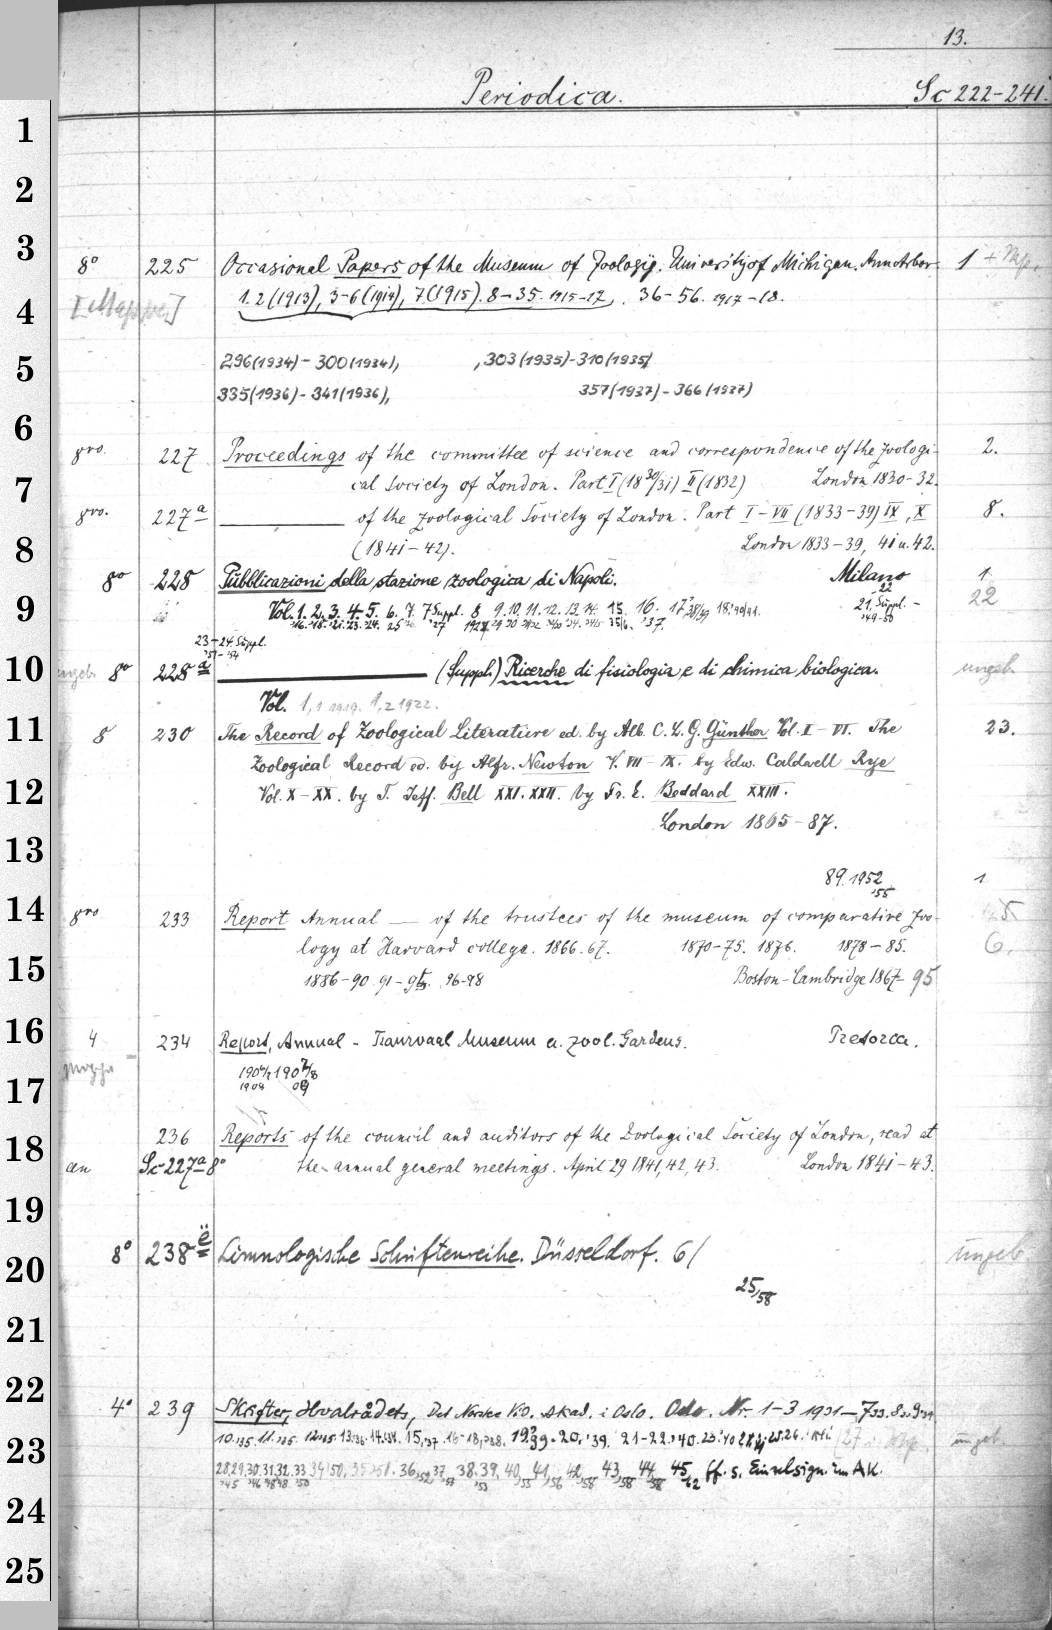 13.
Periodica. Sc 222-241.
1
2
3
8° 225 Occasional Papers of the Museum of Zoology. University of Michigan. Ann Arbor 1
4
[Mappe] 1. 2 (1913), 3-6 (1914), 7 (1915). 8-35. 1915-17, . 36-56. 1917-18.
5
296 (1934) - 300 (1934), , 303 (1935) - 310 (1935)
335 (1936) - 341 (1936), 357 (1937) - 366 (1937)
6
8vo. 227 Proceedings of the committee of science and correspondence of the zoologi- 2.
7
cal Society of London. Part I (1830/31) II (1832) London 1830-32.
8vo. 227a of the zoological Society of London. Part I-VII (1833-39) IX, X 8.
8
(1841-42). London 1833-39, 41 u. 42.
8° 228 Pubblicazioni della stazione zoologica di Napoli. Milano 1
9
Vol. 1. 2. 3. 4. 5. 6. 7. 7 Suppl. 8 9. 10. 11. 12. 13. 14. 15. 16. 22
21, Suppl. -
'49-50
23-24 Suppl.
10
8° 228a (Suppl.) Ricerche di fisiologia e di chimica biologica. ungeb.
Vol. 1, 1 1919. 1, 2 1922.
11
8 230 The Record of Zoological Literature ed. by Alb. C. L. G. Günther Vol. I-VI. The 23.
Zoological Record ed. by Alfr. Newton V. VII-IX. by Edw. Caldwell Rye
12
Vol. X-XX. by T. Jeff. Bell XXI. XXII. by Fr. E. Beddard XXIII.
London 1865-87.
13
89. 1952 1
'55
14
8vo 233 Report Annual — of the trustees of the museum of comparative zoo-
logy at Harvard college. 1866. 67. 1870-75. 1876. 1878-85. 6.
15
1886-90 91-95. 96-98 Boston-Cambridge 1867-95
16
4 234 Report, Annual - Transvaal Museum a. zool. Gardens. Pretoria.
Mappe
17
18
236 Reports of the council and auditors of the Zoological Society of London, read at
an Sc 227a 8° the annual general meetings. April 29 1841, 42, 43. London 1841-43.
19
20
8° 238e Limnologische Schriftenreihe. Düsseldorf. 6/ ungeb
25/58
21
22
4° 239 Skrifter, Hvalrådets, Det Norske Vid. Akad. i Oslo. Oslo. Nr. 1-3 1931-
23
ungeb.
28, 29, 30, 31, 32, 33 34 '50, 35 '51. 36, 37, 38. 39, 40, 41, 42, 43, 44, 45, ff. s. Einzelsign. im AK.
24
25